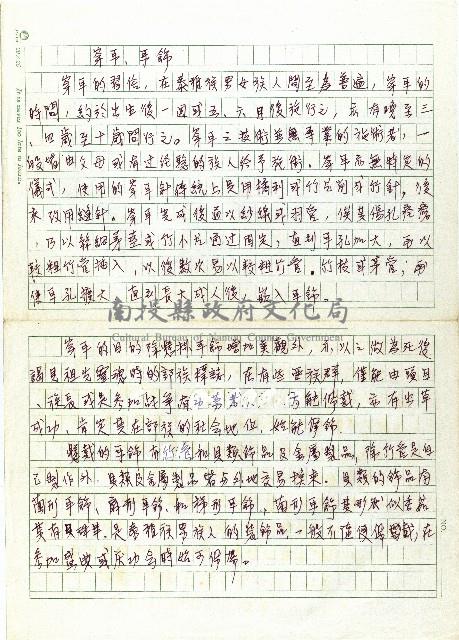 穿耳、耳飾
穿耳的習俗，在泰雅族男女族人間至為普遍，穿耳的
時間，約於出生後一周或五、六月後施行之，亦有晚至三
、四歲至十歲間行之。穿耳之技術並無專業的施術者，一
般皆由父母或有過經驗的族人給予施術。穿耳亦無特定的
儀式，使用的穿耳針傳統上是用橘刺或竹片削成竹針，後
來改用縫針。穿耳完成後通以紗線或羽管，俟其傷孔痊癒
，乃以
竹片通過固定，直到耳孔加大，再以
較粗竹管插入，以後數次易以較粗竹管、竹枝或茅管；而
使耳孔擴大，直到長大成人後，嵌入耳飾。
南投縣政府文化局
Cultural Bureau of Nantou County Government
穿耳的目的除懸掛耳飾增加美觀外，亦以之做為死後
謁見祖先靈魂時的部族標誌，在有些亞族群，僅能由頭目
、族長或是參加戰爭有
方能佩戴，亦有出草
成功，肯定其在部族的社會地位，始能佩飾。
懸戴的耳飾有竹管和貝類飾品及金屬製品，除竹管是自
己製作外，貝類及金屬製品皆與外地交易換來。貝類的飾品有
菌形耳飾、爵形耳飾、和梯形耳飾，菌形耳飾其形狀似香菇
莫有貝珠串，是泰雅族男族人的裝飾品，一般不隨便佩戴，在
參加盛典或慶功會時始可佩帶。